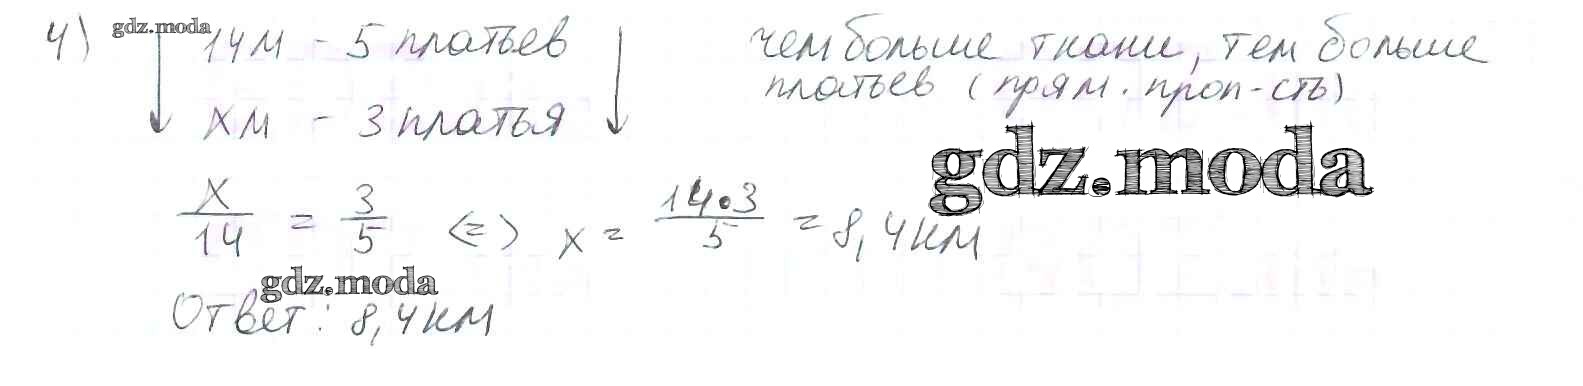 4) gdz.moda
14м - 5 платьев чем больше ткани, тем больше
хм - 3 платья платьев (прям. проп-сть)
gdz.moda
x/14 = 3/5 <=> x = 14•3/5 = 8,4км
gdz.moda
Ответ: 8,4км